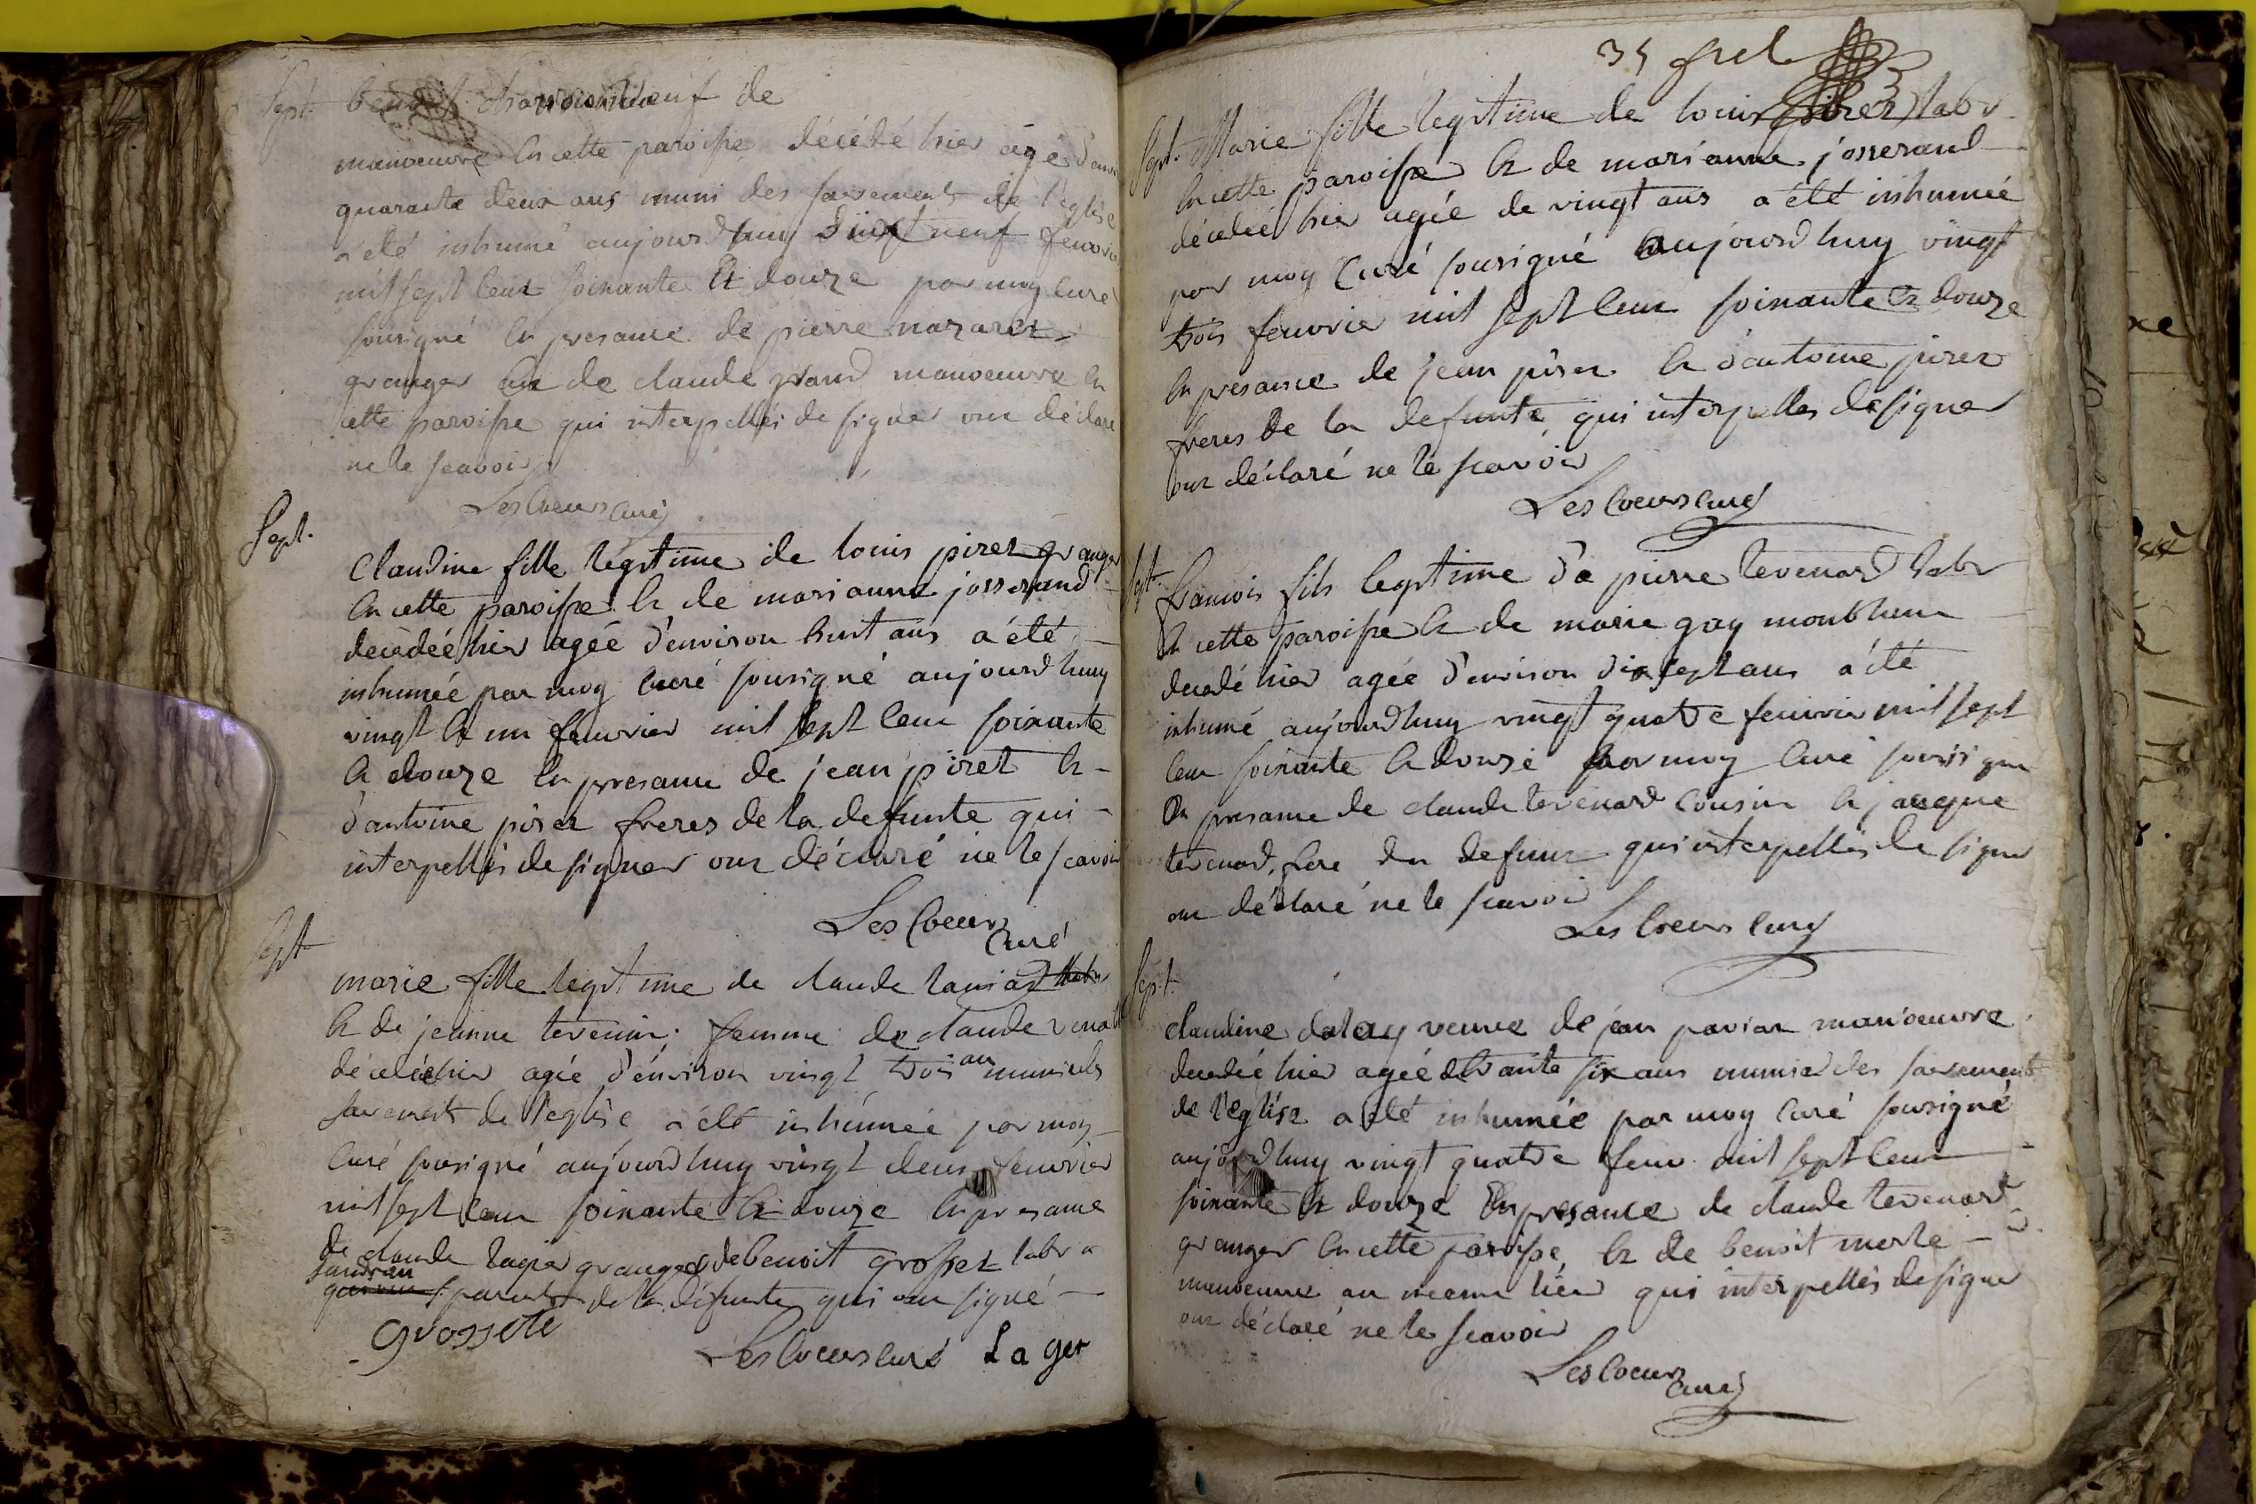 Sept. benoit veuf de
manoeuvre en cette paroisse décédé hier agé d'environ
quarante deux ans muni des sacrements de l'église
a été inhumé aujourdhuy dixneuf feuvrier
mil sept cent soixante et douze par moy curé
sousigné en presance de pierre nazaret
granger et de claude grand manoeuvre en
cette paroisse qui interpellés de signer ont déclaré
ne le scavoir
LesCoeurs curé
Sept.
Claudine fille legitime de louis piret granger
en cette paroisse et de marianne josserand
decédée hier agée d'environ huit ans a été
inhumée par moy curé sousigné aujourdhuy
vingt et un feuvrier mil sept cent soixante
et douze en presance de jean piret et
d'antoine piret freres de la defunte qui
interpellés de signer ont déclaré ne le scavoir
LesCoeurs
curé
Sept
marie fille legitime de claude
et de jeanne tevenin femme de claude
décédée hier agée d'environ vingt trois ans munie des
sacrements de l'eglise a été inhumée par moy
curé sousigné aujourdhuy vingt deux feuvrier
mil sept cent soixante et douze en presance
de claude lager granger de benoit grosset labr
parents de la defunte qui ont signé
grossete
LesCoeurs curé Lager
35
Sept. Marie fille legitime de louis piret labr
en cette paroisse et de marianne josserand
décédée hier agée de vingt ans a été inhumée
par moy curé sousigné aujourdhuy vingt
trois feuvrier mil sept cent soixante et douze
en presance de jean piret et d'antoine piret
freres de la defunte qui interpellés de signer
ont déclaré ne le scavoir
LesCoeurs curé
Sept. francois fils legitime d'a pierre tevenard labr
en cette paroisse et de marie gay
decedé hier agée d'environ dix sept ans a été
inhumé aujourdhuy vingt quatre feuvrier mil sept
cent soixante et douze par moy curé sousigné
en presance de claude tevenard cousin et jacque
tevenard frere du defunt qui interpellés de signer
ont déclaré ne le scavoir
LesCoeurs curé
Sept.
claudine veuve de jean manoeuvre
decedée hier agée de six ans munie des sacrements
de l'eglise a été inhumée par moy curé sousigné
aujourdhuy vingt quatre feuv mil sept cent
soixante et douze en presance de claude tevenard
granger en cette paroisse et de benoit merle
manoeuvre au meme lieu qui interpellés de signer
ont déclaré ne le scavoir
LesCoeurs
curé